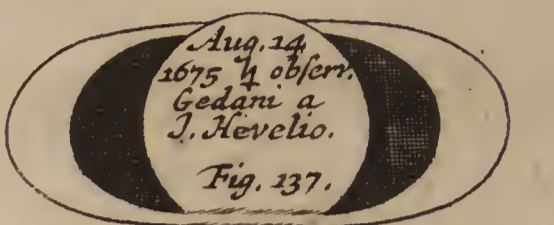 Aug. 14
1675 ♃ obſerv.
Gedani a
J. Hevelio.
Fig. 137.